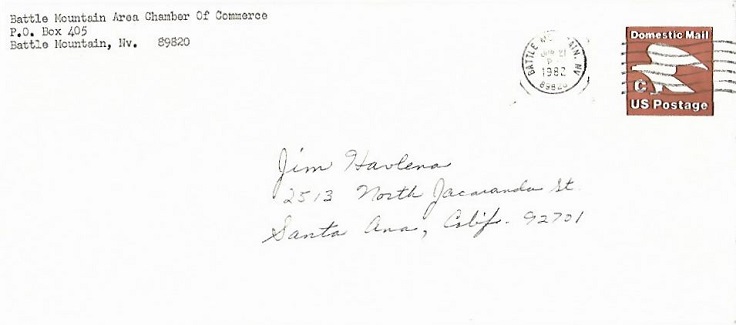 Battle Mountain Area Chamber Of Commerce
P.O. Box 405
Battle Mountain, Nv. 89820
BATTLE MOUNTAIN, NV
1982
89820
Domestic Mail
C
US Postage
Jim Havlena
2513 North Jacaranda St.
Santa Ana, Calif. 92701